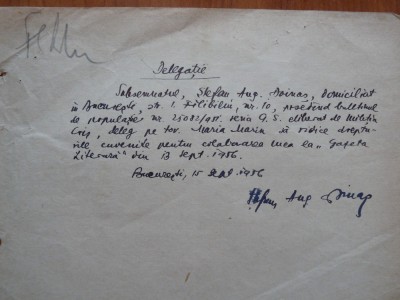 Delegație
Subsemnatul, Ștefan Aug. Doinaș, domiciliat
în București, str. I. Filibiliu, nr. 10, posedând buletinul
de populație nr. seria G. S. eliberat de Miliția
deleg pe tov. Maria Marin să ridice dreptu-
rile cuvenite pentru colaborarea mea la „Gazeta
Literară" din 13 sept. 1956.
București, 15 sept. 1956
Ștefan Aug. Doinaș